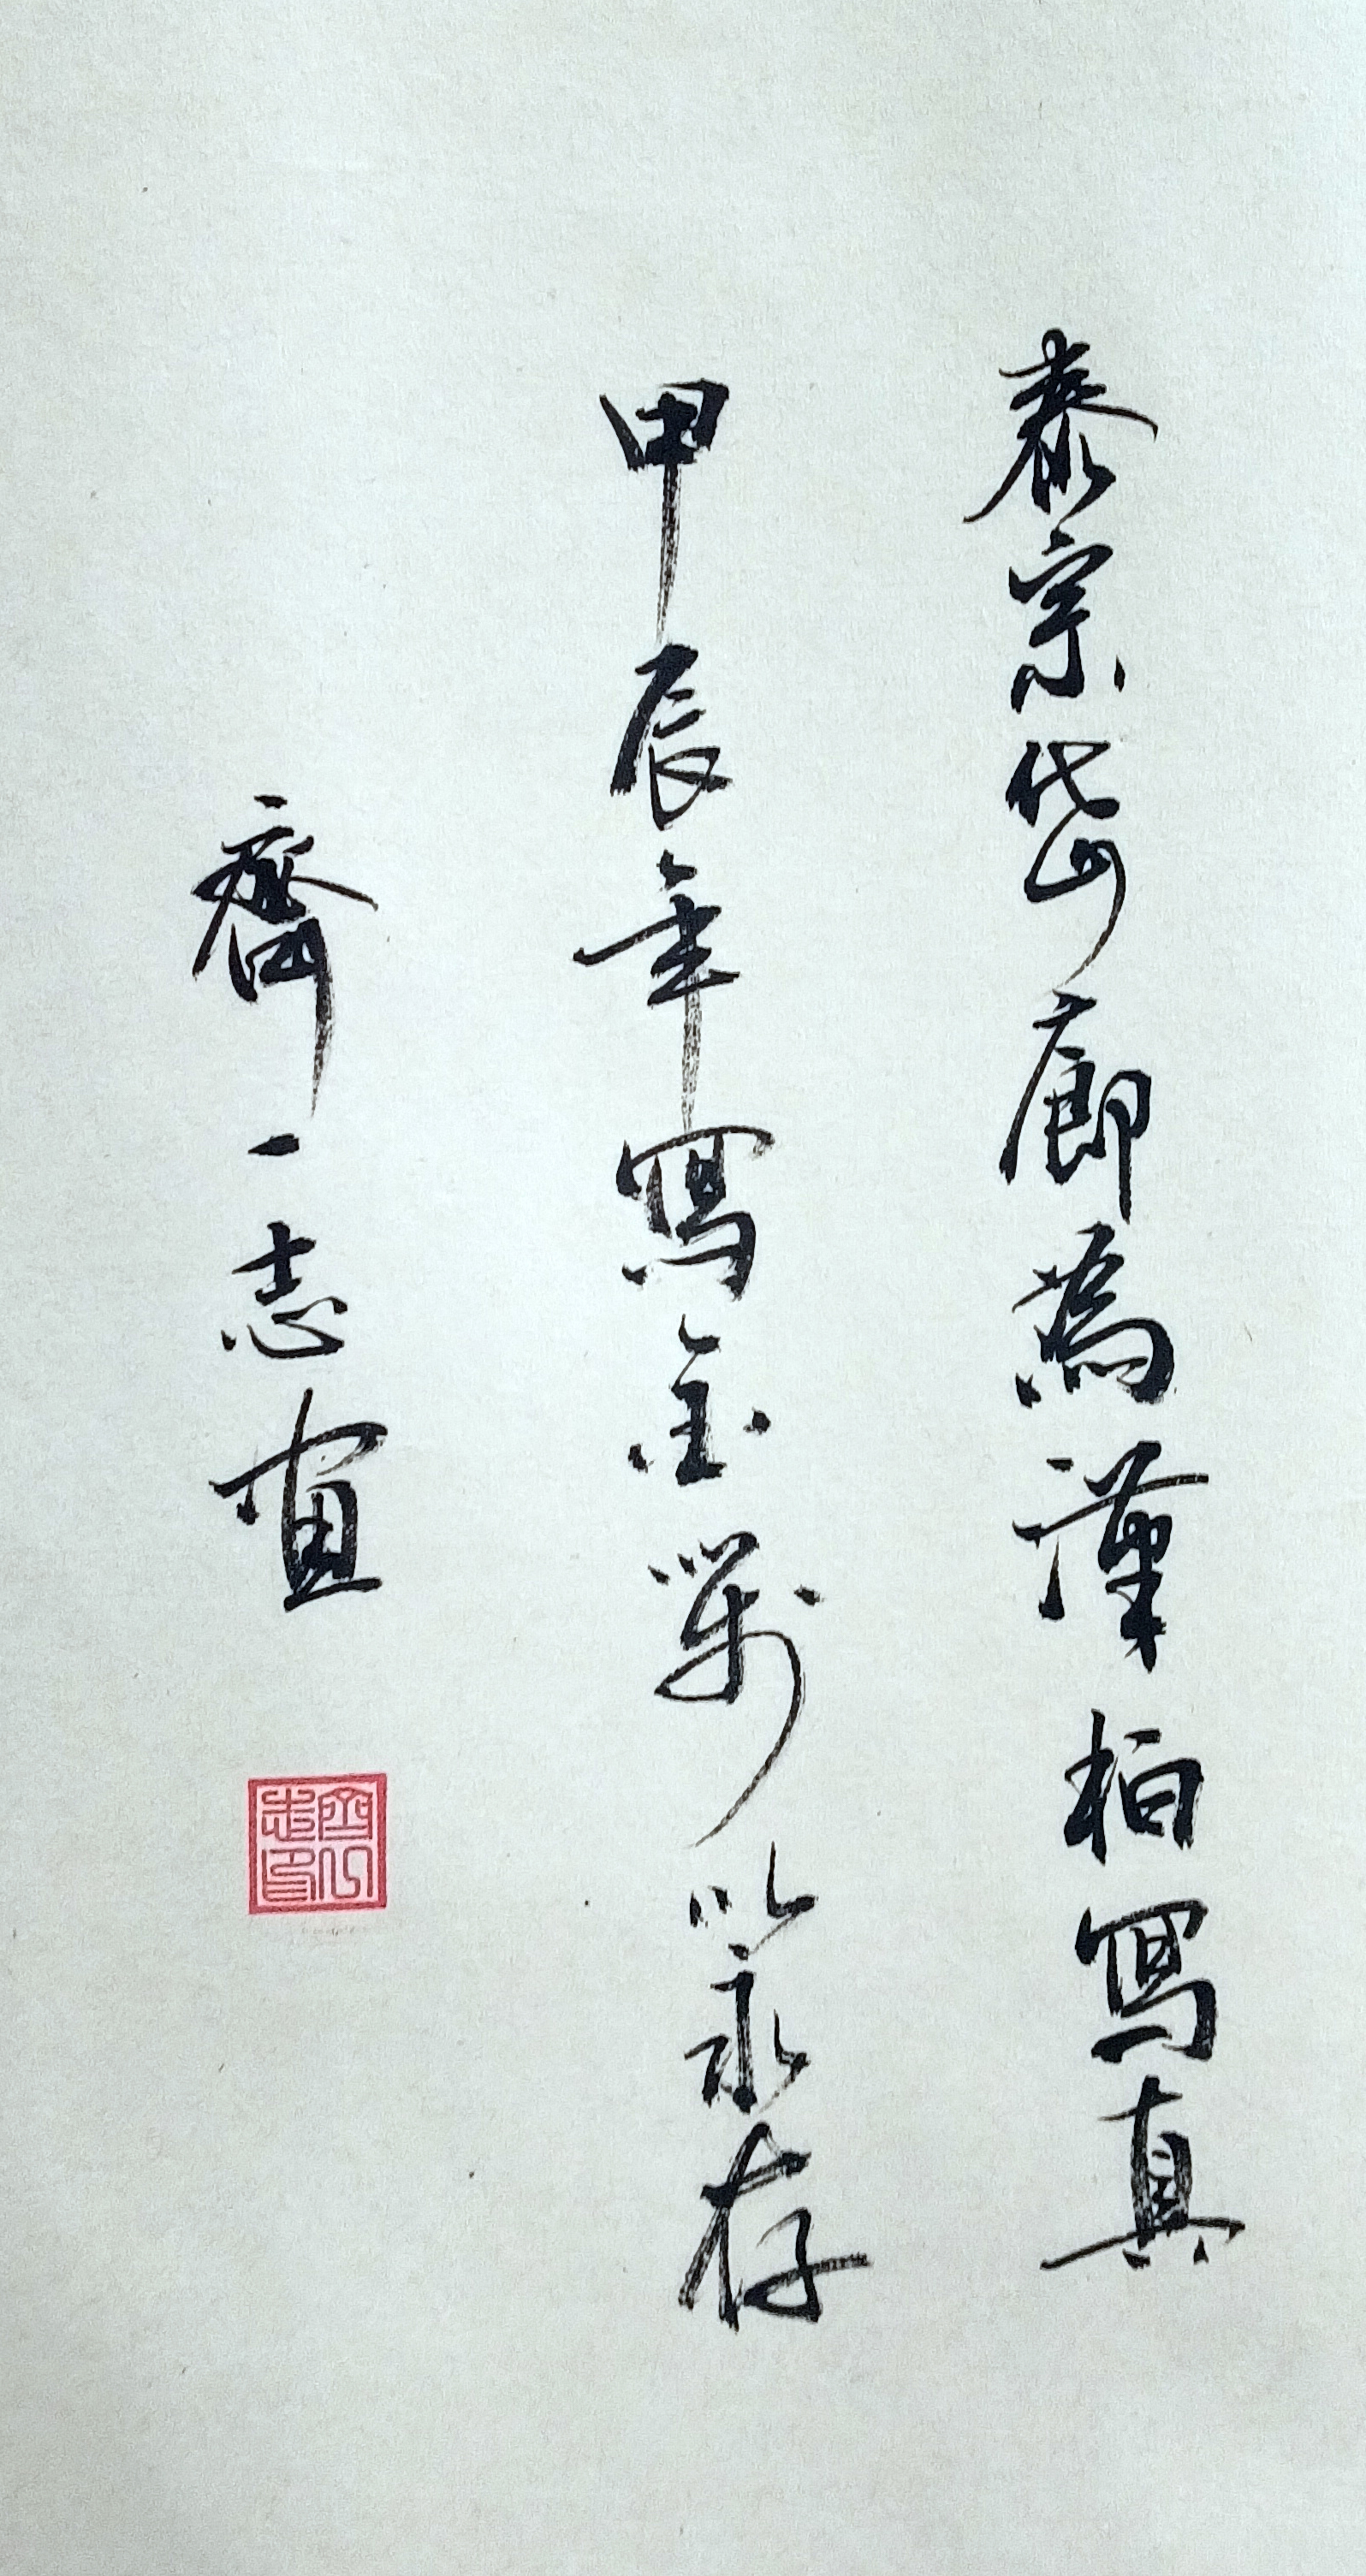 泰宗岱廊為漢柏寫真
甲辰年寫金以永存
齊一志畫